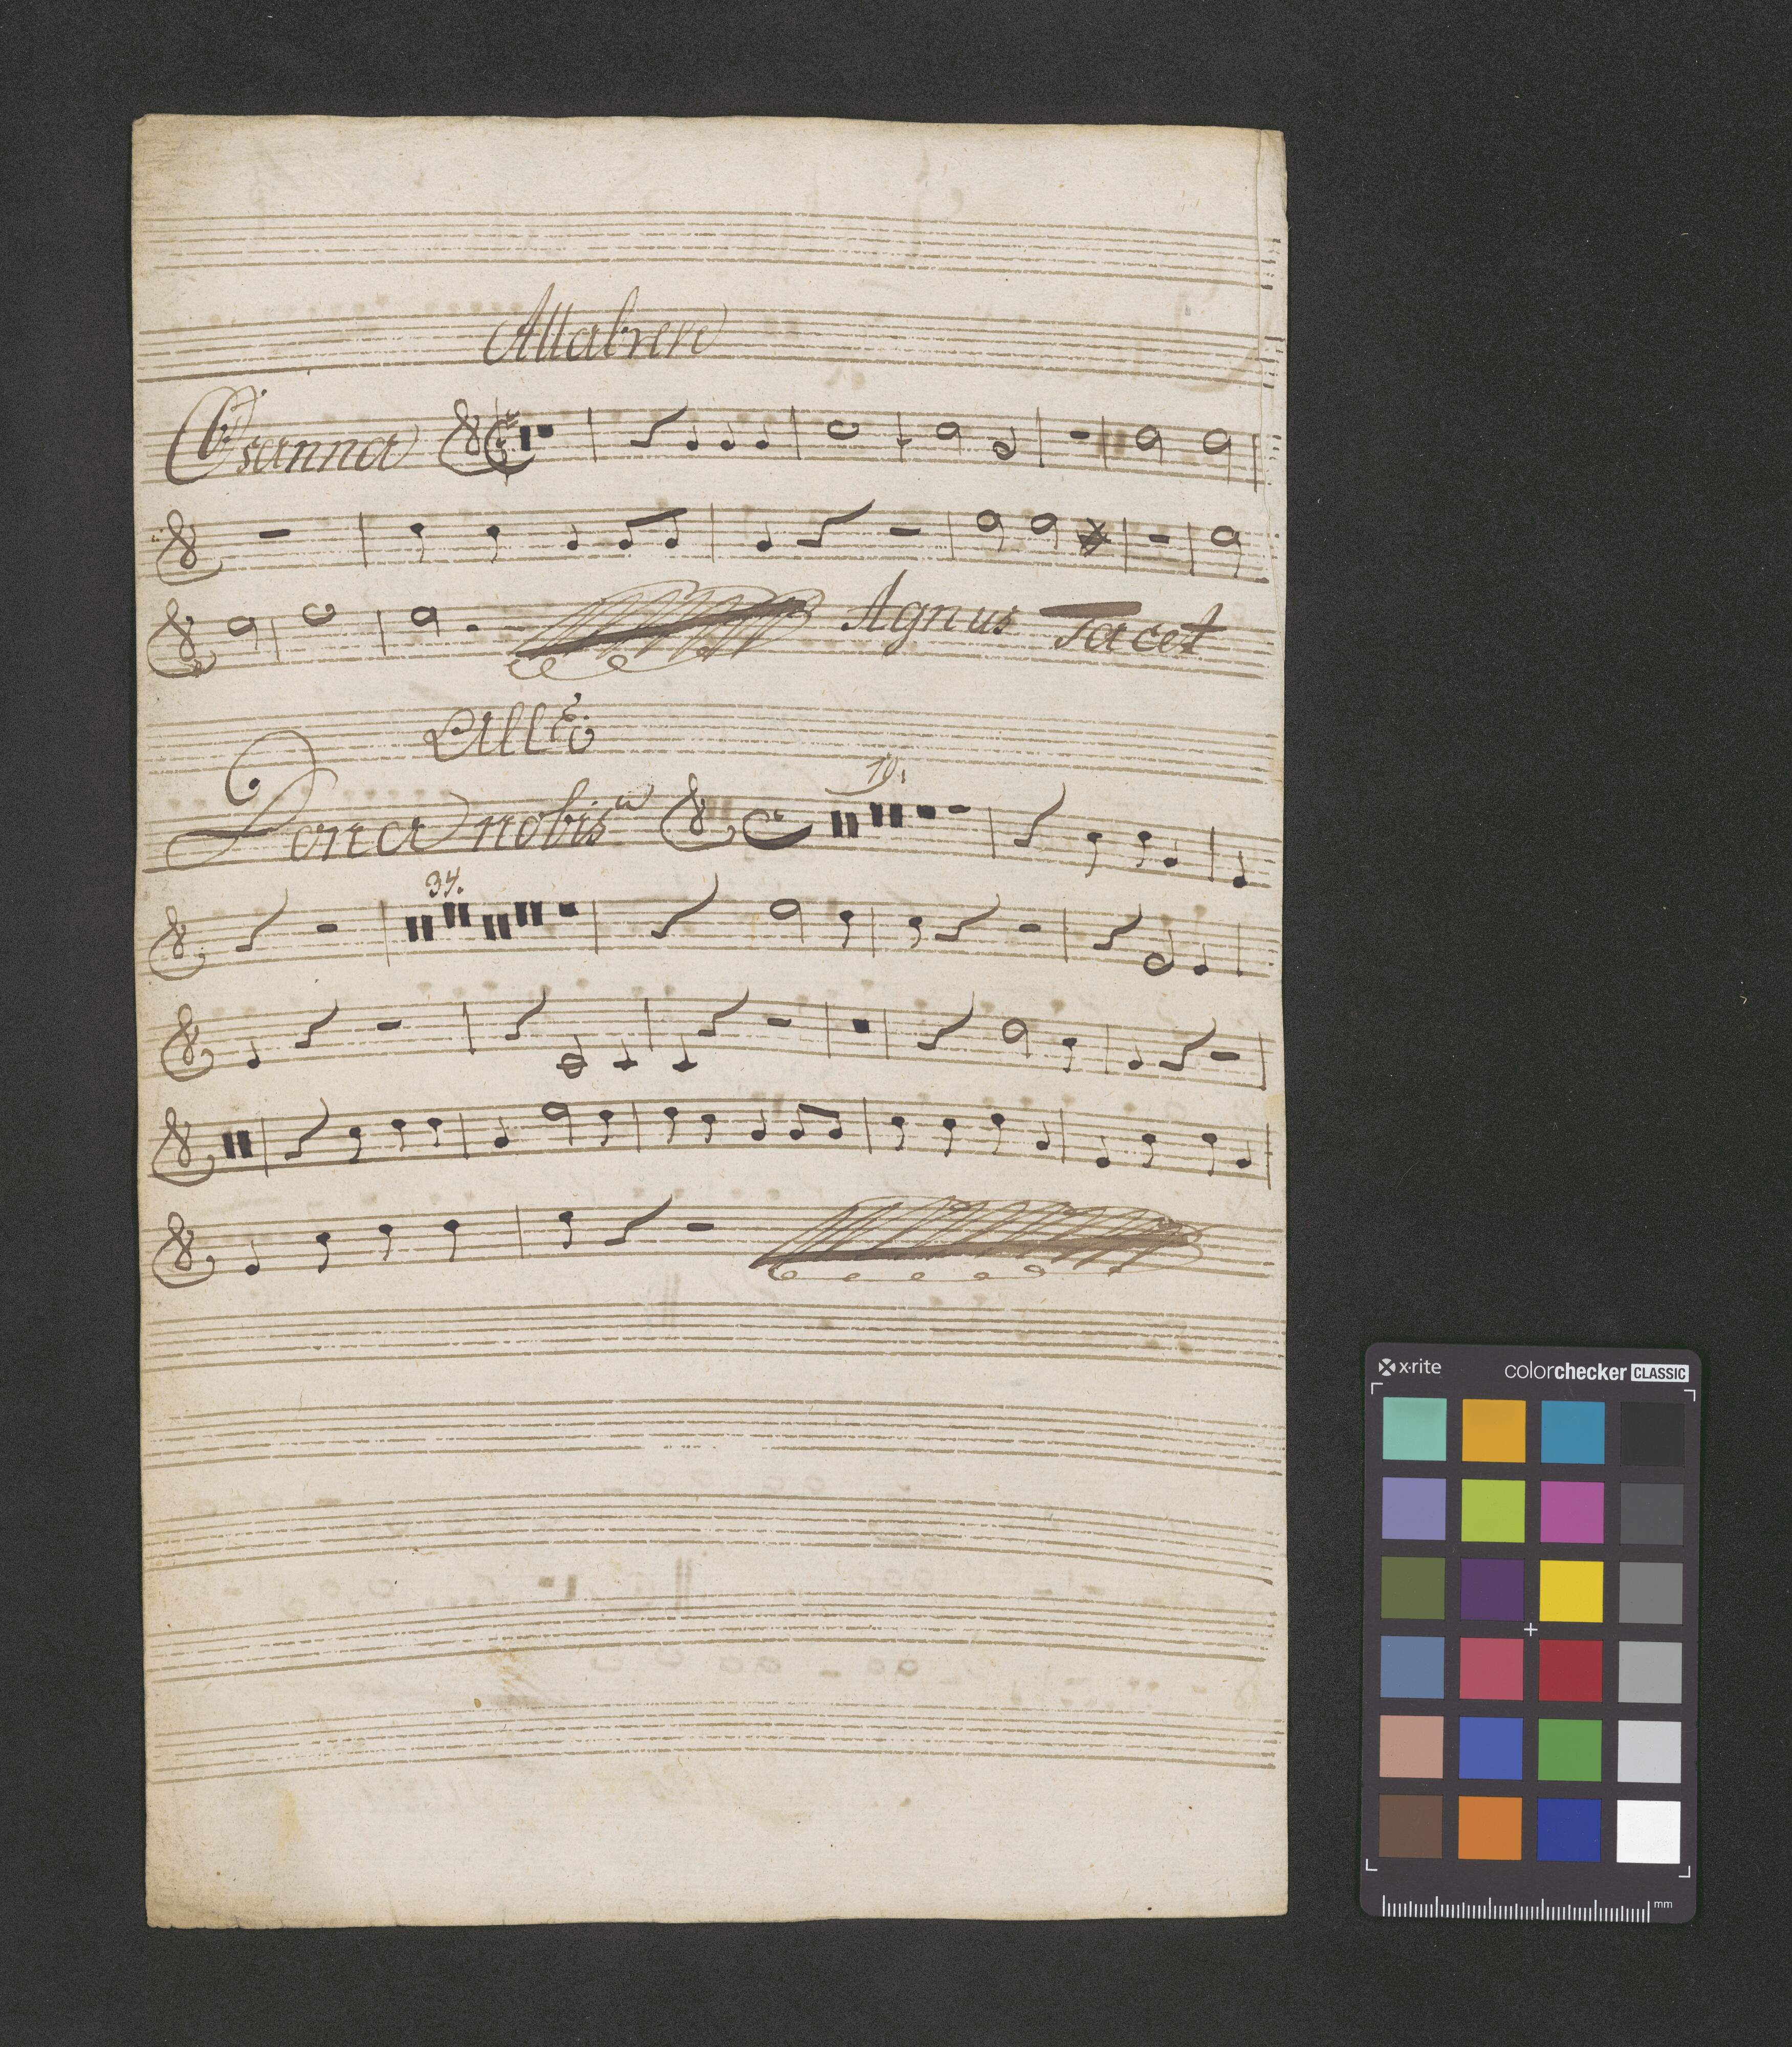 Allabreve
Osanna
Agnus Tacet
Allo
Dona nobis
19.
34.
x-rite colorchecker CLASSIC
mm